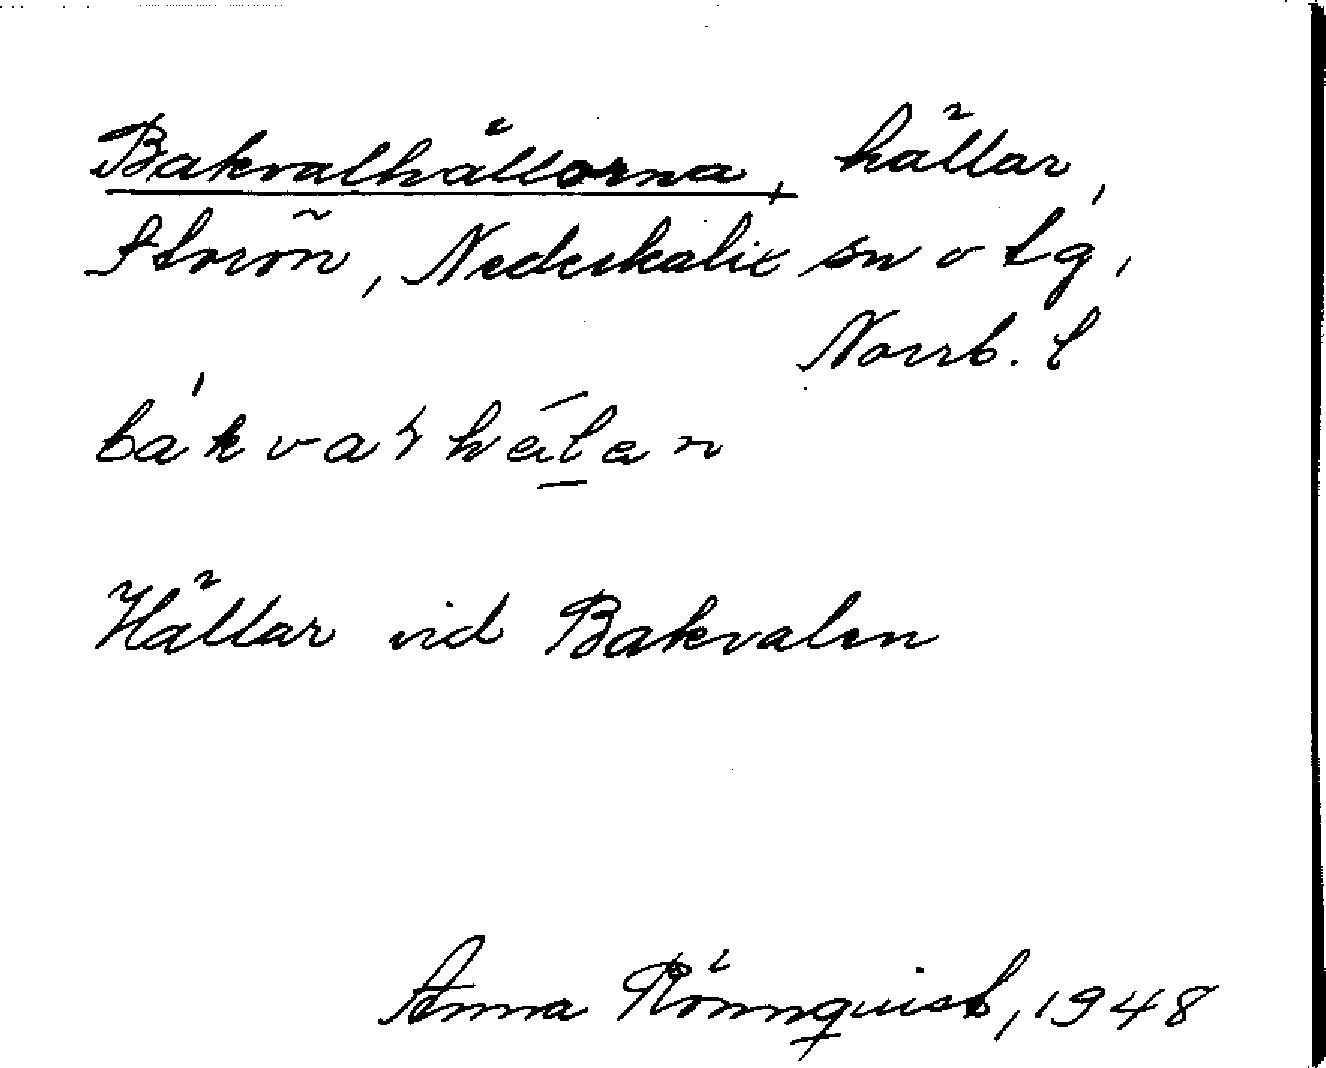 Bakvalhällorna, hällar,
Storön, Nederkalix sn o tg,
Norrb. l
Hällar vid Bakvalen
Anna Rönnquist, 1948